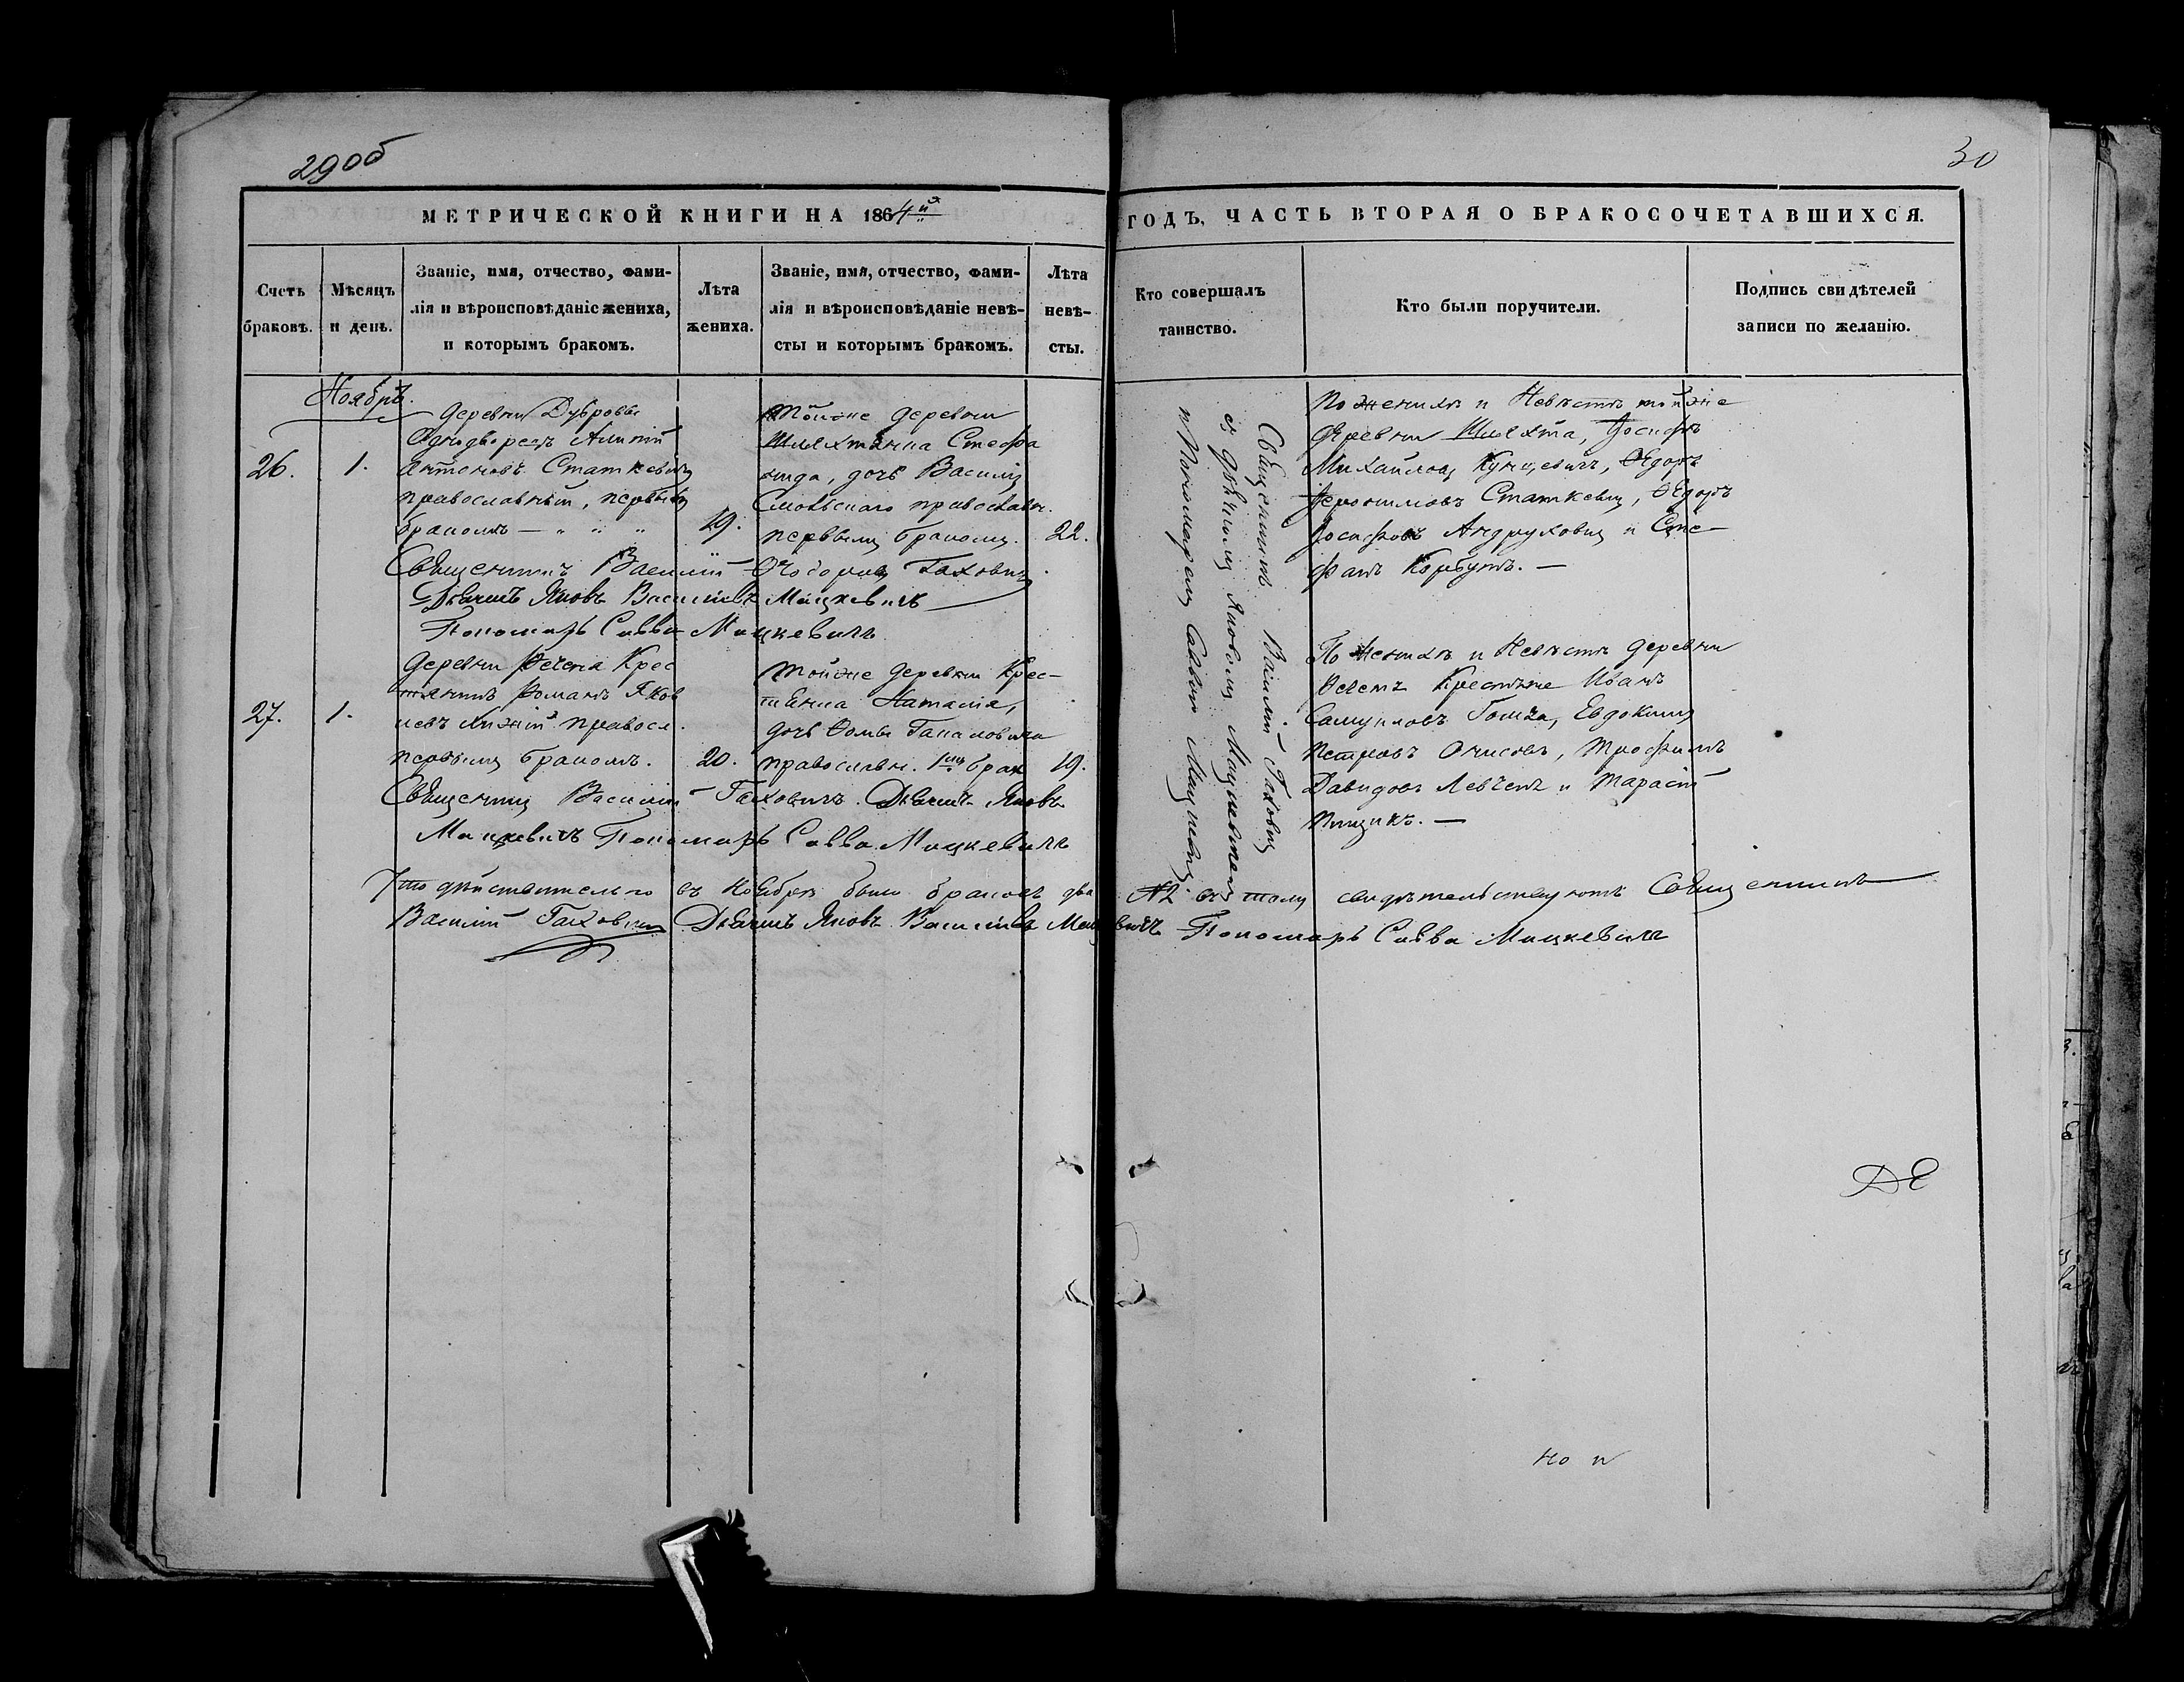 290б
30
МЕТРИЧЕСКОЙ КНИГИ НА 1864й
ГОДЪ, ЧАСТЬ ВТОРАЯ О БРАКОСОЧЕТАВШИХСЯ.
Счетъ
браковъ.
Мѣсяцъ
и день.
Званіе, имя, отчество, фами-
лія и вѣроисповѣданіе жениха,
и которымъ бракомъ.
Лѣта
жениха.
Званіе, имя, отчество, фами-
лія и вѣроисповѣданіе невѣ-
сты и которымъ бракомъ.
Лѣта
невѣ-
сты.
Кто совершалъ
таинство.
Кто были поручители.
Подпись свидѣтелей
записи по желанію.
Ноябрь.
26.
1.
Деревни Дубровы
Однодворецъ
Антоновъ Статкевичъ
православный, первымъ
бракомъ — " " "
19.
тойже деревни
Шляхтянка Стефа
нида, дочь Василія
православн.
первымъ бракомъ.
22.
Священникъ Василій Ѳеодоровъ Гахович
Дьячекъ Яковъ Васильевъ Мацкевичъ
Пономарь Савва Мацкевичъ
Священникъ Василій Гахович
съ дьячкомъ Яковомъ Мацкевичемъ
и Пономаремъ Саввою Мацкевичемъ.
По женихѣ и Невѣстѣ тойже
деревни Шляхта, Іосифъ
Михайловъ Кунцевичъ, Ѳедоръ
Іеронимовъ Статкевич, Ѳедоръ
Іосифовъ Андрухович и Сте-
фанъ Корбутъ. —
27.
1.
Деревни Крес
тянинъ Романъ Яков
левъ правосл.
первымъ бракомъ.
20.
тойже деревни Крес-
тьянка Наталія,
дочь Ѳомы
православн. 1мъ брак
19.
Священникъ Василій Гаховичъ. Дьячекъ Яковъ
Мацкевичъ Пономарь Савва Мацкевичъ
По Женихѣ и Невѣстѣ деревни
Крестьяне Иванъ
Самуиловъ Евдокимъ
Петровъ Трофимъ
Давидовъ Левченъ и Тарасій
Пищикъ. —
Что дѣйствительно въ Ноябрѣ было браковъ два №2 въ томъ свидѣтельствуютъ Священникъ
Василій Гахович Дьячекъ Яковъ Васильевъ Мацкевичъ Пономарь Савва Мацкевичъ